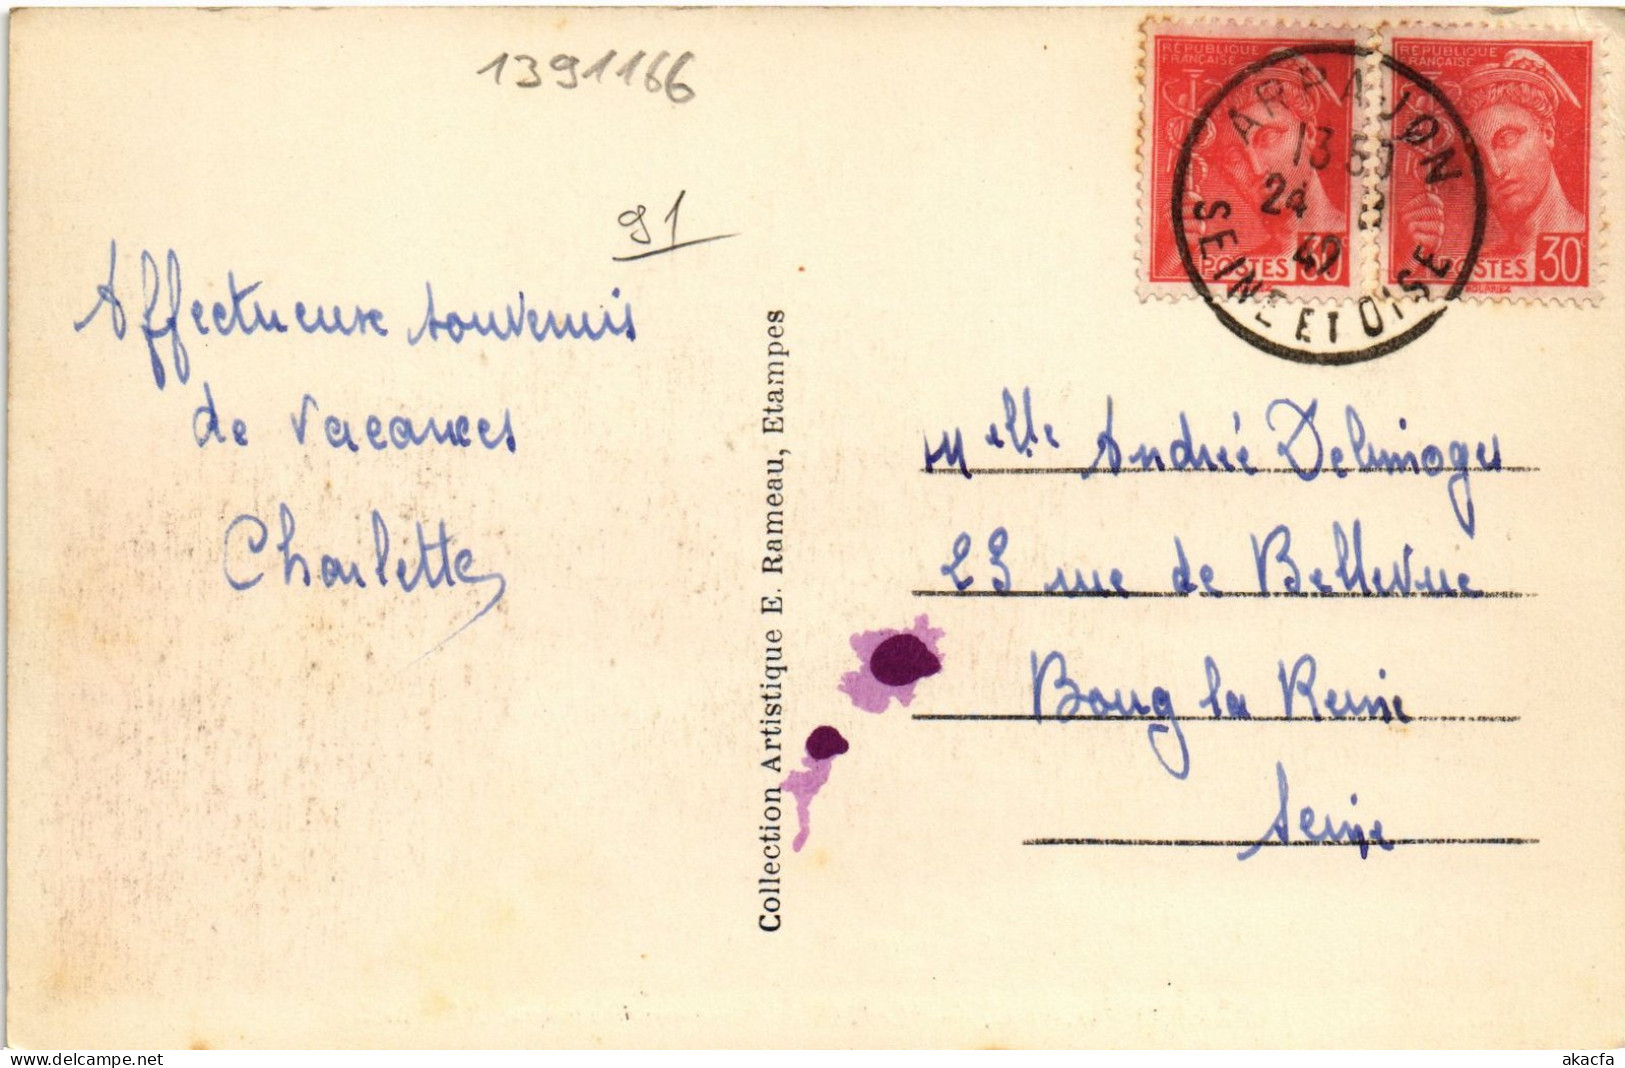 1391166
91
Affectueux souvenirs
de vacances
Charlette
Collection Artistique E. Rameau, Etampes
RÉPUBLIQUE
FRANÇAISE
POSTES 30c
RÉPUBLIQUE
FRANÇAISE
POSTES 30c
ARPAJON
24
SEINE ET OISE
Melle Andrée Delimoges
23 rue de Bellevue
Boug la Reine
Seine
akacfa.delcampe.net